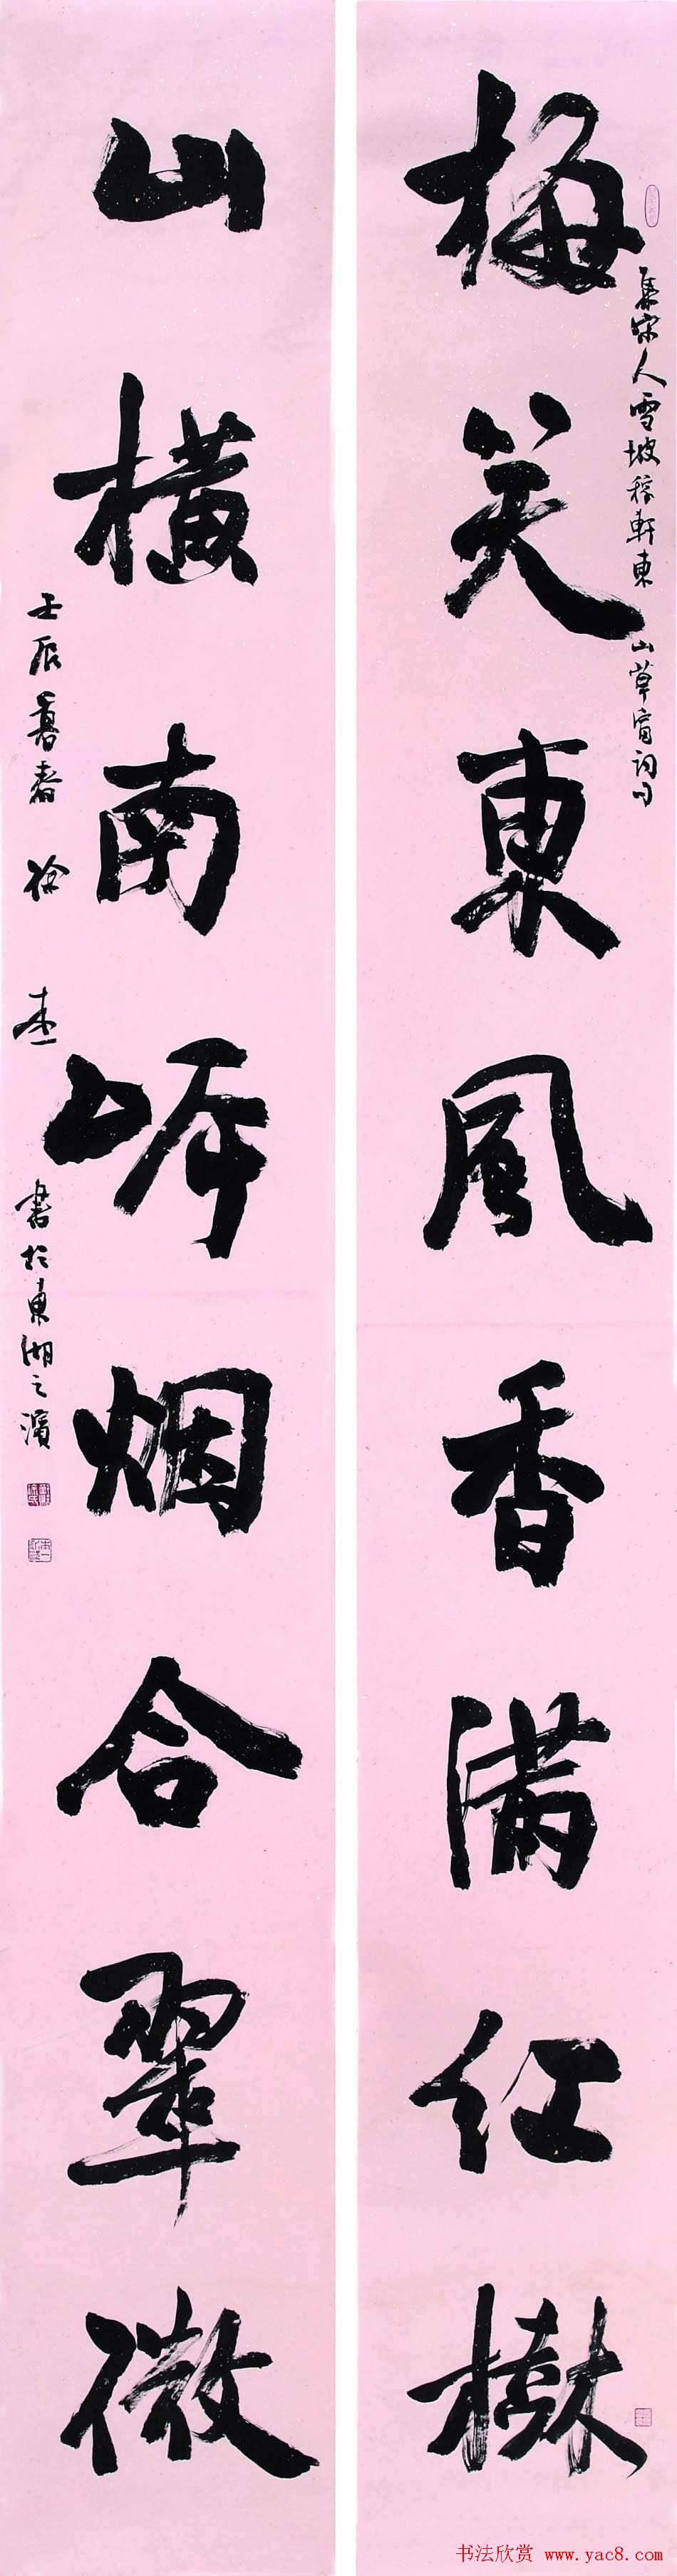 梅笑東風香满红樹
集宋人雪坡稼軒東山草窗詞句
山横南岸烟合翠微
壬辰暮春徐本一書於東湖之濱
书法欣赏 www.yac8.com